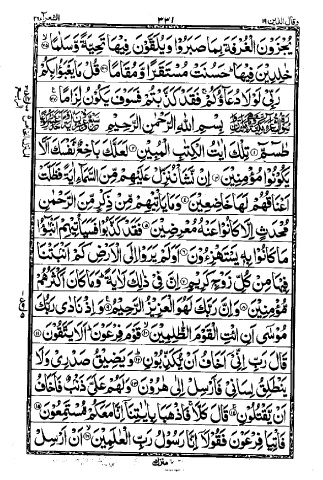 وقال الذين ١٩ ٣٣١ الشعرآء ٢٦
يُجْزَوْنَ الْغُرْفَةَ بِمَا صَبَرُوْا وَيُلَقَّوْنَ فِيْهَا تَحِيَّةً وَّسَلٰمًا ۝٧٥
خٰلِدِيْنَ فِيْهَا حَسُنَتْ مُسْتَقَرًّا وَّمُقَامًا ۝٧٦ قُلْ مَا يَعْبَؤُا بِكُمْ
رَبِّىْ لَوْلَا دُعَآؤُكُمْ فَقَدْ كَذَّبْتُمْ فَسَوْفَ يَكُوْنُ لِزَامًا ۝٧٧
بِسْمِ اللّٰهِ الرَّحْمٰنِ الرَّحِيْمِ
طٰسٓمّٓ ۝١ تِلْكَ اٰيٰتُ الْكِتٰبِ الْمُبِيْنِ ۝٢ لَعَلَّكَ بَاخِعٌ نَّفْسَكَ اَلَّا
يَكُوْنُوْا مُؤْمِنِيْنَ ۝٣ اِنْ نَّشَاْ نُنَزِّلْ عَلَيْهِمْ مِّنَ السَّمَآءِ اٰيَةً فَظَلَّتْ
اَعْنَاقُهُمْ لَهَا خٰضِعِيْنَ ۝٤ وَمَا يَاْتِيْهِمْ مِّنْ ذِكْرٍ مِّنَ الرَّحْمٰنِ
مُحْدَثٍ اِلَّا كَانُوْا عَنْهُ مُعْرِضِيْنَ ۝٥ فَقَدْ كَذَّبُوْا فَسَيَاْتِيْهِمْ اَنْۢبٰٓؤُا
مَا كَانُوْا بِهٖ يَسْتَهْزِءُوْنَ ۝٦ اَوَلَمْ يَرَوْا اِلَى الْاَرْضِ كَمْ اَنْۢبَتْنَا
فِيْهَا مِنْ كُلِّ زَوْجٍ كَرِيْمٍ ۝٧ اِنَّ فِىْ ذٰلِكَ لَاٰيَةً وَمَا كَانَ اَكْثَرُهُمْ
مُّؤْمِنِيْنَ ۝٨ وَاِنَّ رَبَّكَ لَهُوَ الْعَزِيْزُ الرَّحِيْمُ ۝٩ وَاِذْ نَادٰى رَبُّكَ
مُوْسٰٓى اَنِ ائْتِ الْقَوْمَ الظّٰلِمِيْنَ ۝١٠ قَوْمَ فِرْعَوْنَ اَلَا يَتَّقُوْنَ ۝١١
قَالَ رَبِّ اِنِّىْٓ اَخَافُ اَنْ يُّكَذِّبُوْنِ ۝١٢ وَيَضِيْقُ صَدْرِىْ وَلَا
يَنْطَلِقُ لِسَانِىْ فَاَرْسِلْ اِلٰى هٰرُوْنَ ۝١٣ وَلَهُمْ عَلَىَّ ذَنْۢبٌ فَاَخَافُ
اَنْ يَّقْتُلُوْنِ ۝١٤ قَالَ كَلَّا فَاذْهَبَا بِاٰيٰتِنَآ اِنَّا مَعَكُمْ مُّسْتَمِعُوْنَ ۝١٥
فَاْتِيَا فِرْعَوْنَ فَقُوْلَآ اِنَّا رَسُوْلُ رَبِّ الْعٰلَمِيْنَ ۝١٦ اَنْ اَرْسِلْ
منزل